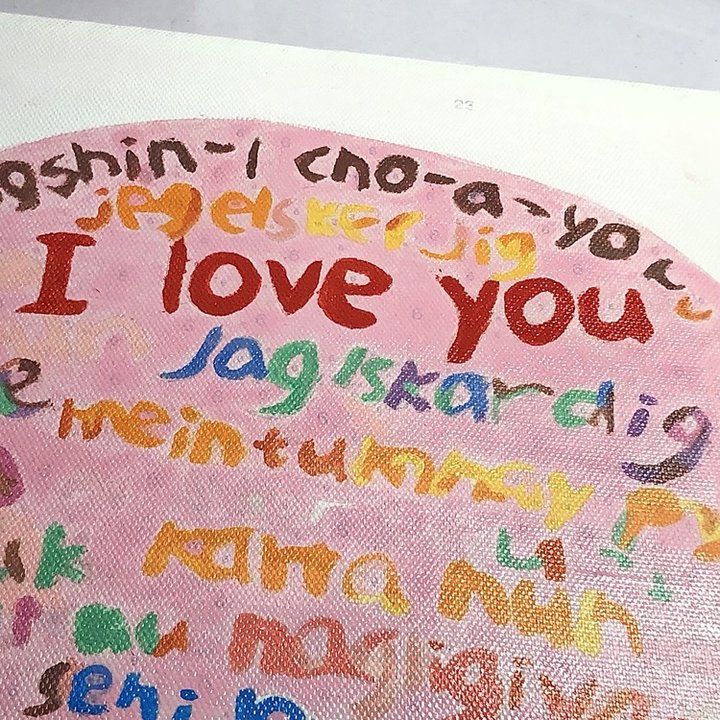 23
gshin-i cho-a-you
jegelskerdig
I love you
Jagiskardig
mein tummay
uk kanna nun
mu nagligive
seni